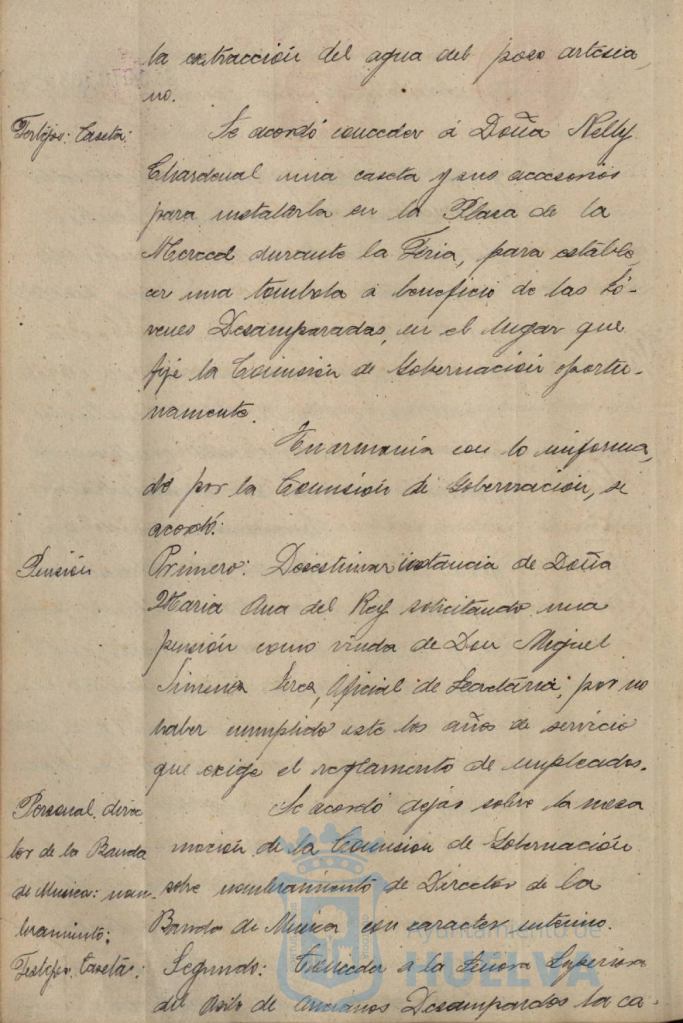 la extracción del agua del poso artesia,
no.
Festejos: Caseta:
Se acordó conceder á Doña Nelly
Chardenal una caseta y sus accesorios
para instalarla en la Plasa de la
Merced durante la Feria, para estable,
cer una tombola a beneficio de las Jó-
venes Desamparadas, en el lugar que
fije la Comisión de Gobernación oportu-
namente.
En armonia con lo informa,
do por la Comisión de Gobernación, se
acordó:
Pensión
Primero: Desestimar instancia de Doña
Maria Ana del Rey solicitando una
pensión como viuda de Don Miguel
Jimenes Peres, Oficial de Secretaria, por no
haber cumplido este los años de servicio
que exige el reglamento de empleados.
Personal. direc
tor de la Banda
de Musica: nom-
bramiento:
Se acordó dejar sobre la mesa
moción de la Comisión de Gobernación
sobre nombramiento de Director de la
Banda de Musica con caracter interino.
Festejos. Caseta:
Segundo: Conceder a la Señora Superiora
del Asilo de Ancianos Desampardos la ca-
Ayuntamiento de
HUELVA